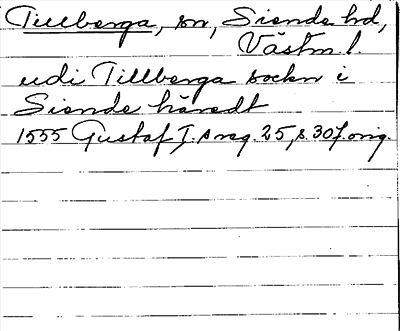 Tillberga, sn, Siende hd,
Västm. l.
udi Tillberga sockn i
Siende häredt
1555 Gustaf I:s reg. 25, s. 307. orig.